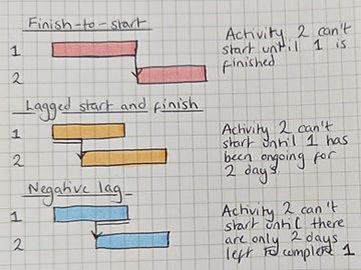 Finish-to-start
1
2
Activity 2 can't
start until 1 is
finished
Lagged start and finish
1
2
Activity 2 can't
start until 1 has
been ongoing for
2 days
Negative lag
1
2
Activity 2 can't
start until there
are only 2 days
left to complete 1